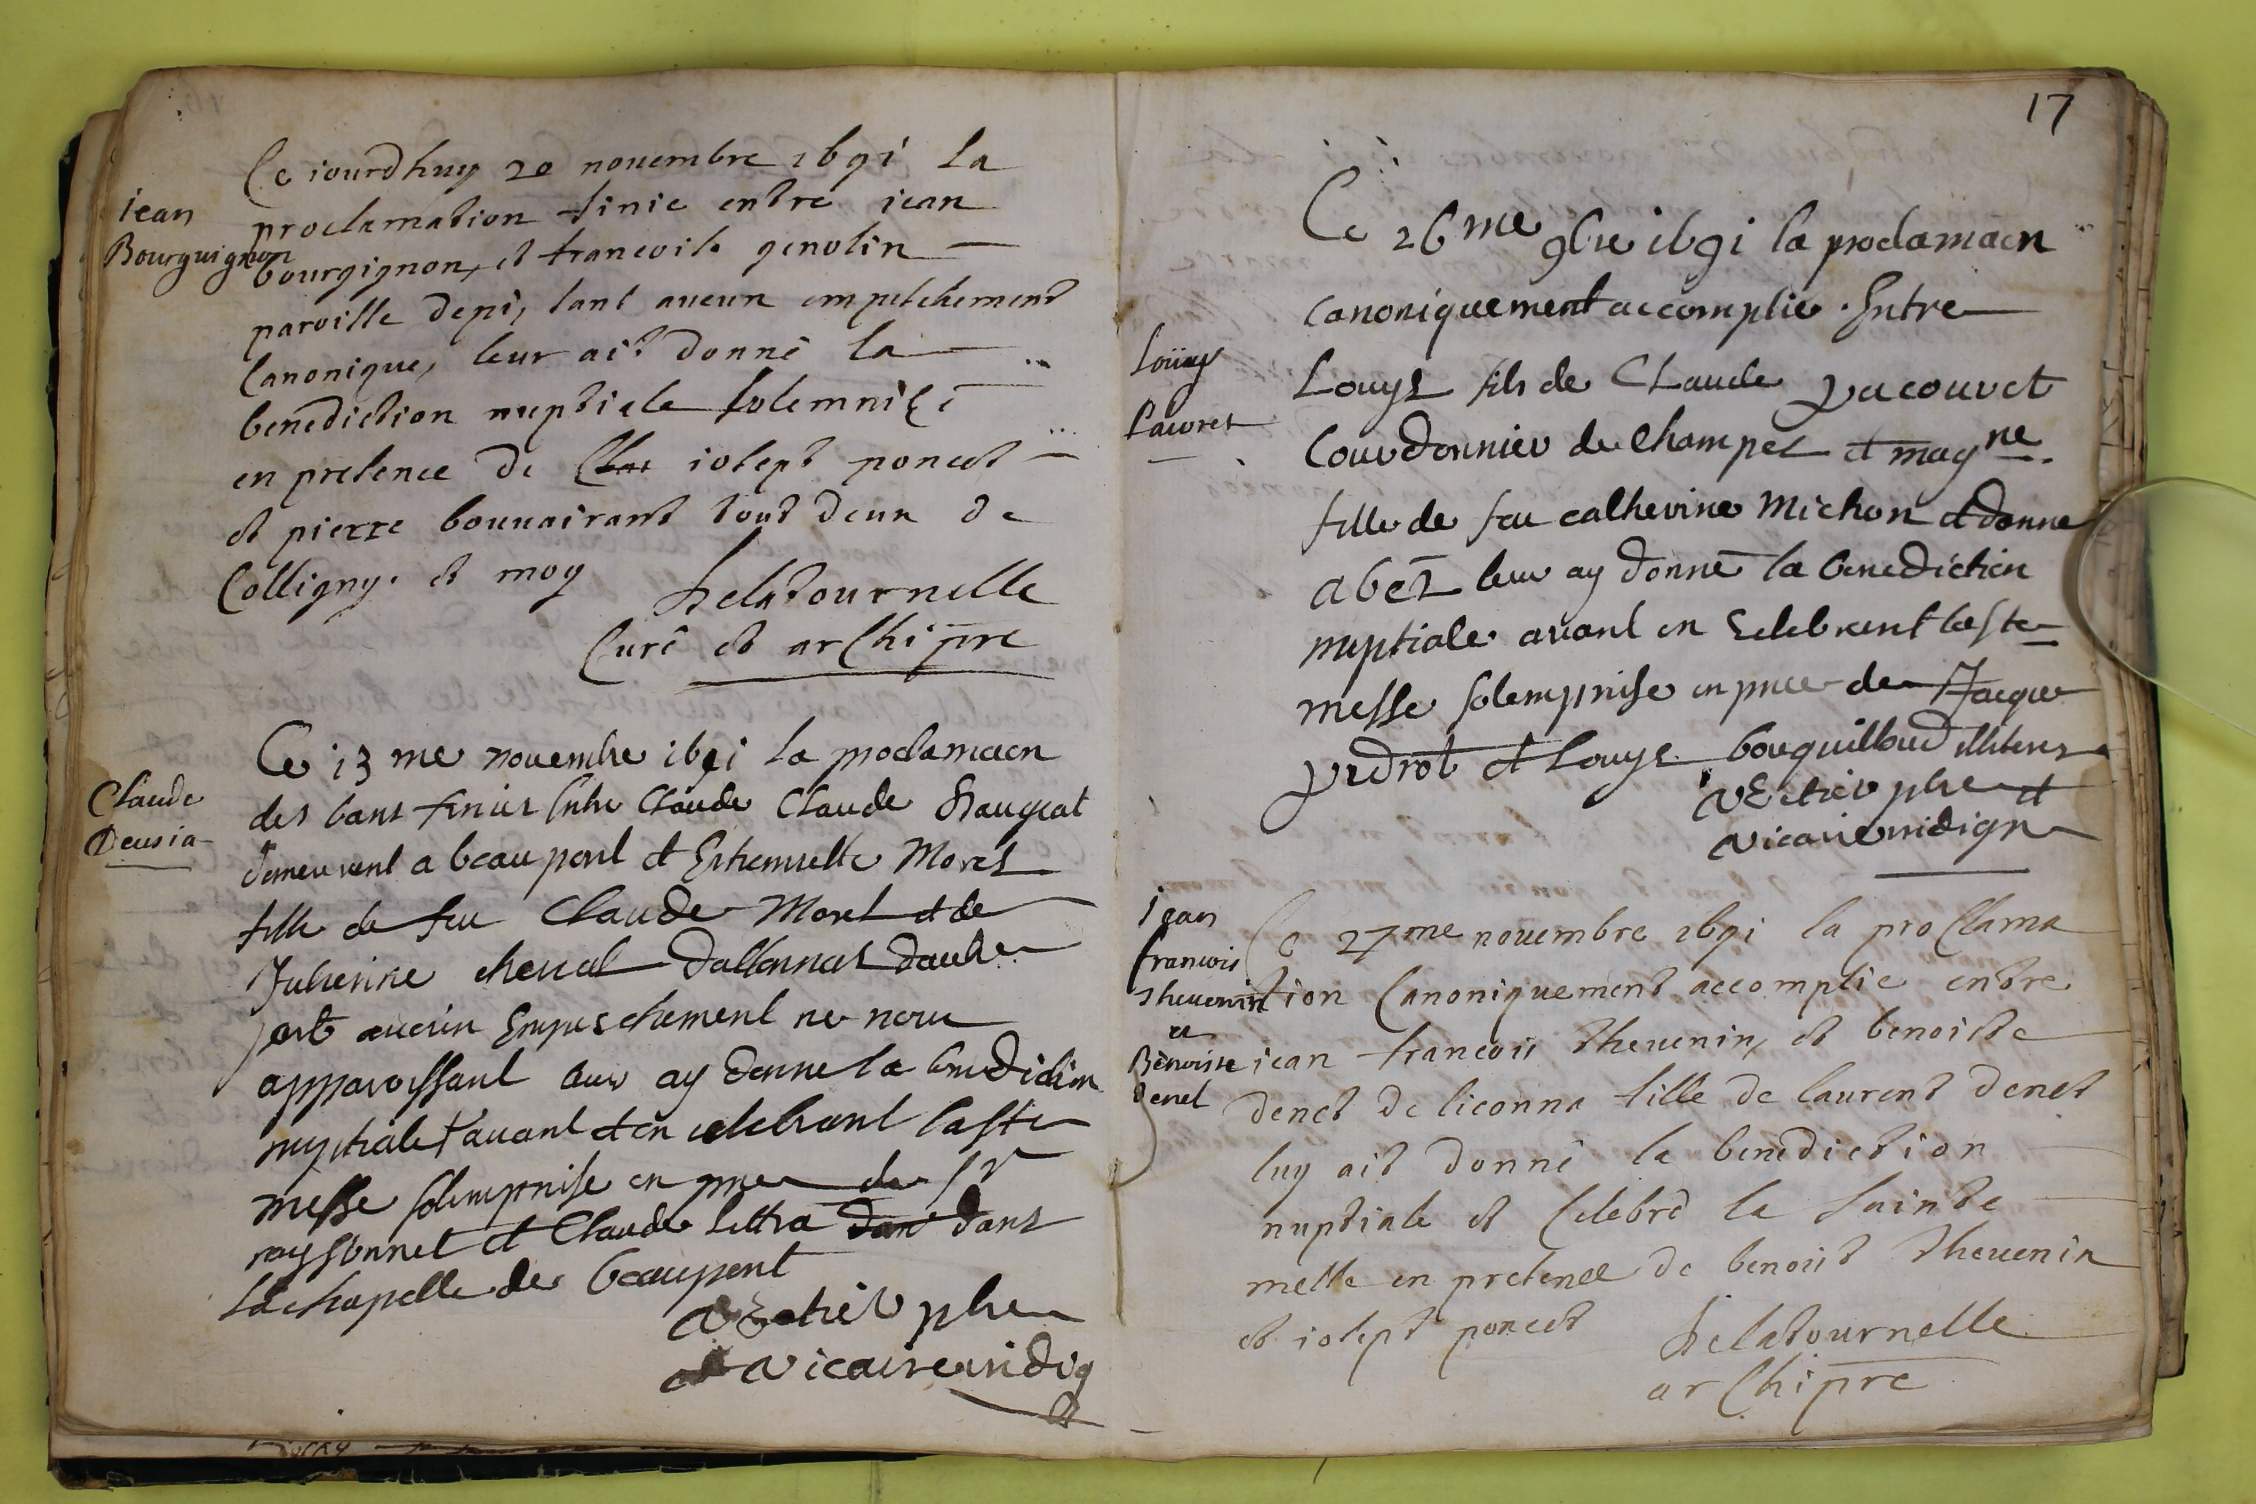 Jean
Bourguignon
Ce iourdhuy 20 nouembre 1691 la
proclamation finie entre iean
bourgignon, et francoise genolin
paroisse depi, sans aucun empeschement
Canonique, leur ait donné la
benediction nuptiale solemnisé
en presence de iosept poncet
et pierre bouuairant tout deux de
Colligny. et moy Delatournelle
Curé et arChipre
Claude
Deusia
Ce 13 me nouembre 1691 la proclamaon
des bans finies Entre Claude Claude
demeurent a beaupont et Estiennette Morel
fille de feu Claude Morel et de
cheual daultre
part aucun Empeschement ne nous
apparoissant leur ay donne la benediction
nuptiale auant et en celebrant la ste
messe solempnise en pnce de sr
raysonnet et Claude dans
la chapelle de beaupont
pbre
vicaire indig
17
Loüys
Pacoret
Ce 26me 9bre 1691 la proclamaon
canoniquement accomplie. Entre
Louys fils de Claude pacouret
Courdonnier de Champel et
fille de feu catherine Michon et donne
leur ay donné la benediction
nuptiale auant en Celebrant la ste
messe solempnise en pnce de Jacque
pidrot et Louys
pbre et
vicaire indign
Jean
francois
Theuenin
et
Benoiste
denet
Ce 27me nouembre 1691 la proClama
tion Canoniquement accomplie entre
iean francois theuenin, et benoiste
denet de liconna fille de laurent denet
luy ait donné la benediction
nuptiale et Celebré la sainte
messe en presence de benoist theuenin
et iosept poncet Delatournelle
arChipre